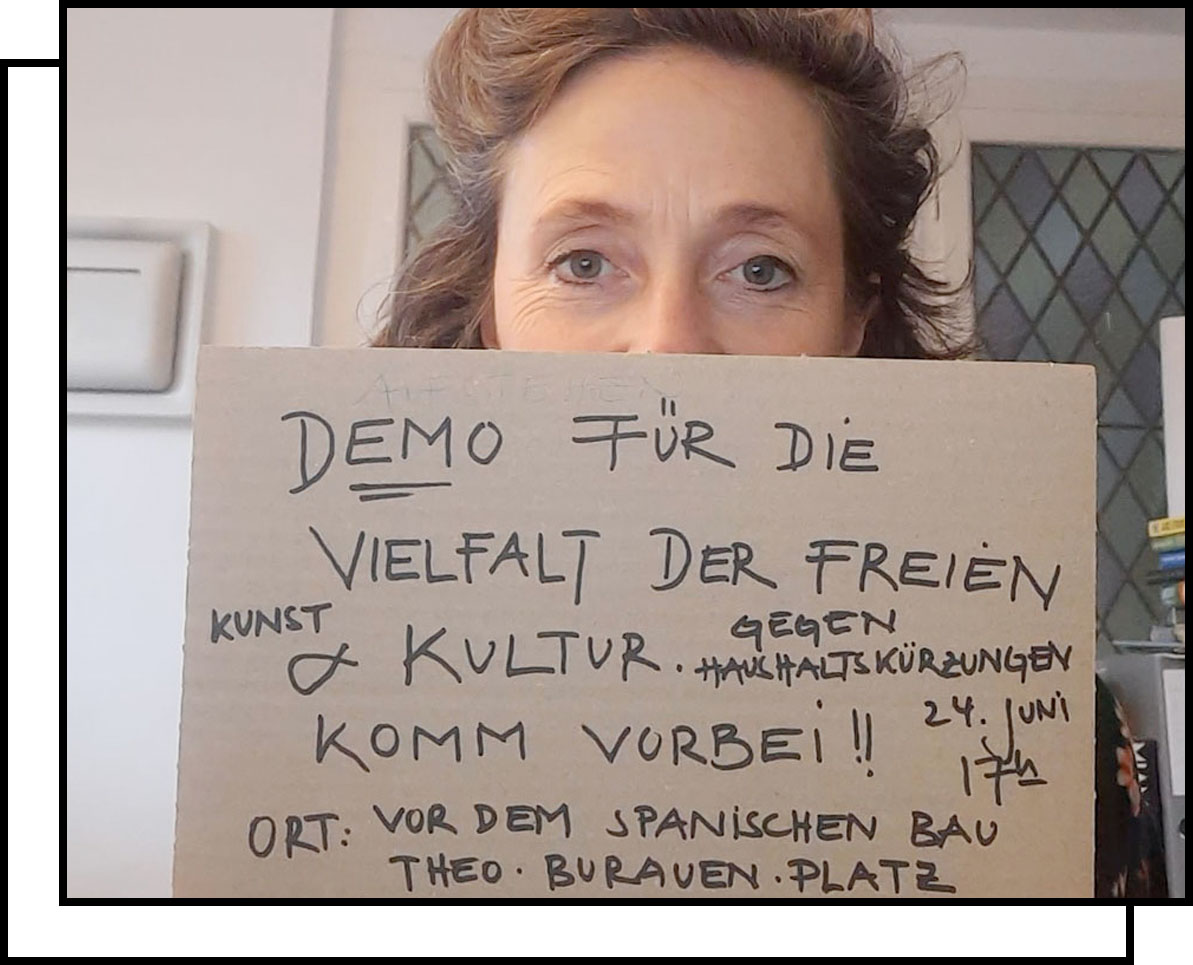 DEMO FÜR DIE
VIELFALT DER FREIEN
KUNST
& KULTUR. GEGEN
HAUSHALTSKÜRZUNGEN
KOMM VORBEI!! 24. JUNI
17h
ORT: VOR DEM SPANISCHEN BAU
THEO · BURAUEN · PLATZ